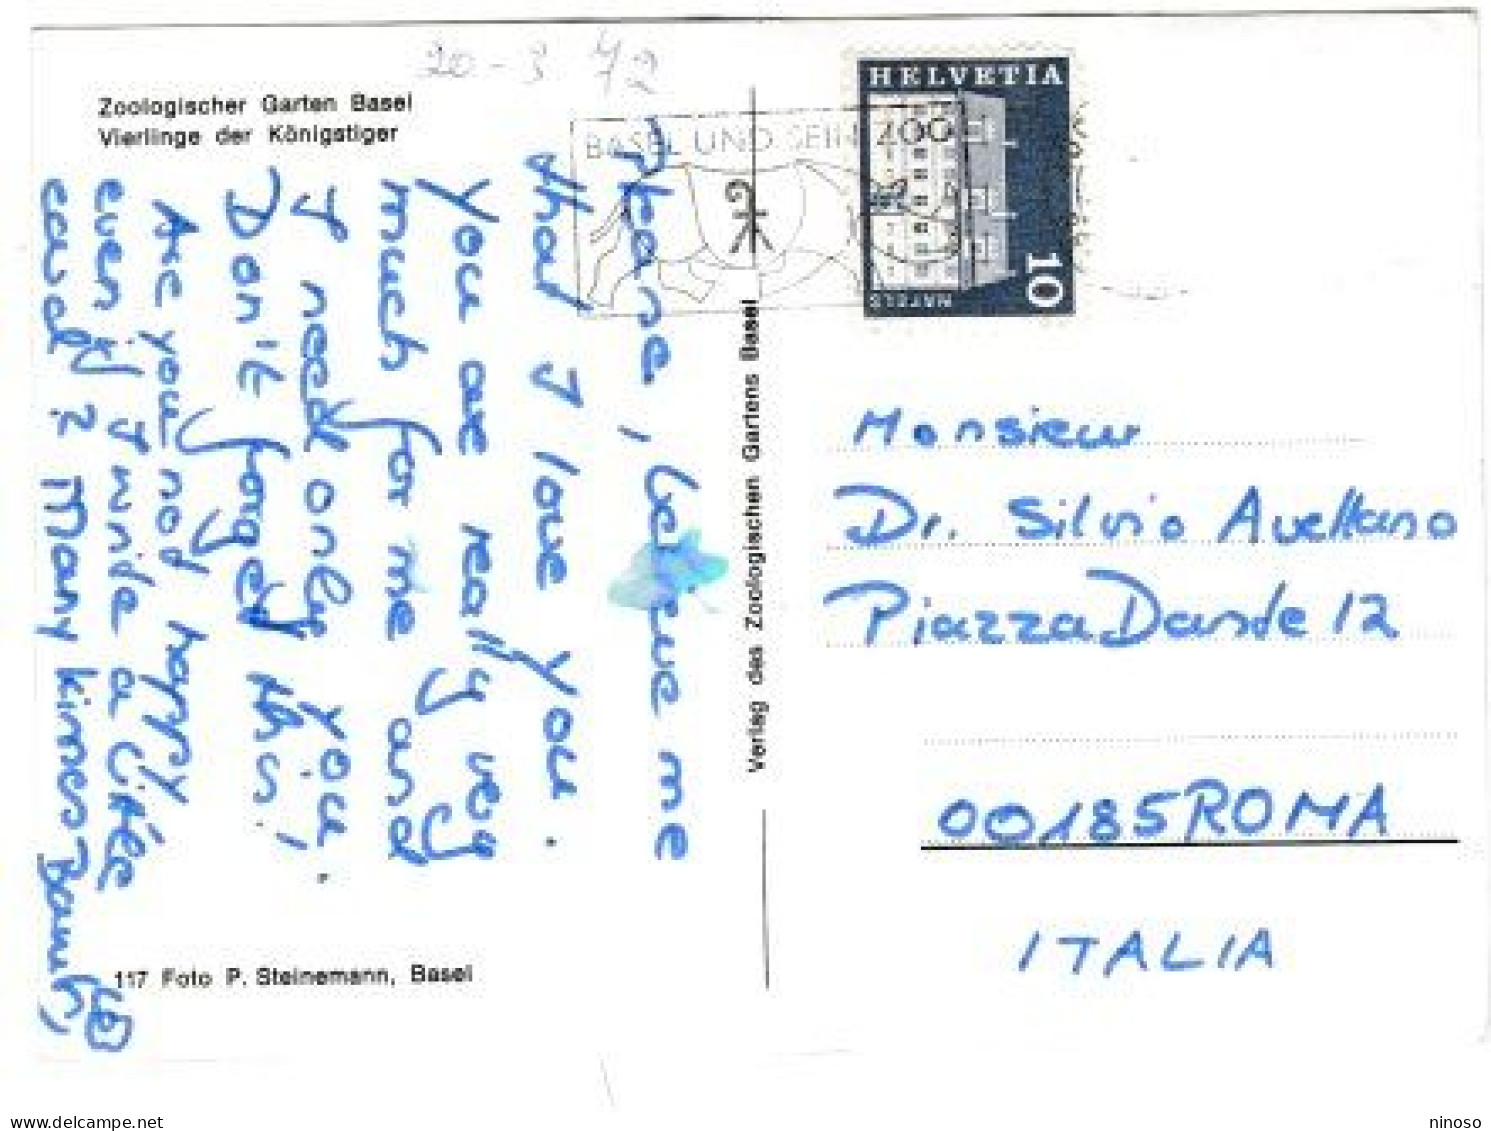 20-3 72
Zoologischer Garten Basel
Vierlinge der Königstiger
BASEL UND SEIN ZOO
HELVETIA
10
NÄFELS
Please, believe me
that I love you.
You are really very
much for me and
I need only you.
Don't forget this!
Are you not happy
even if I write a little
card? Many kisses
Verlag des Zoologischen Gartens Basel
Monsieur
Dr. Silvio Avellano
Piazza Dante 12
00185 ROMA
ITALIA
117 Foto P. Steinemann, Basel
delcampe.net
ninoso